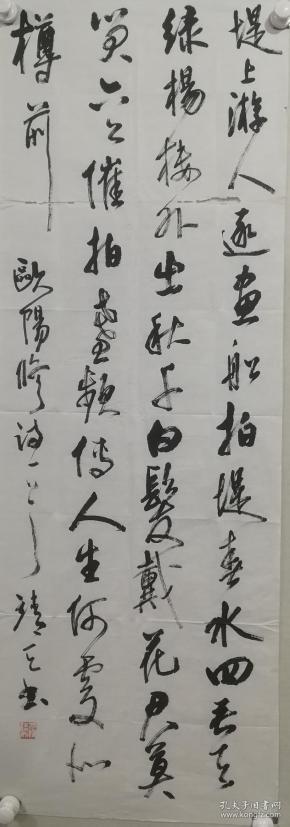 堤上游人逐画船拍堤春水四垂天
绿杨楼外出秋千白髮戴花君莫
笑六幺催拍盏频传人生何處似
樽前
歐陽修诗一首 靖天书
孔夫子旧书网